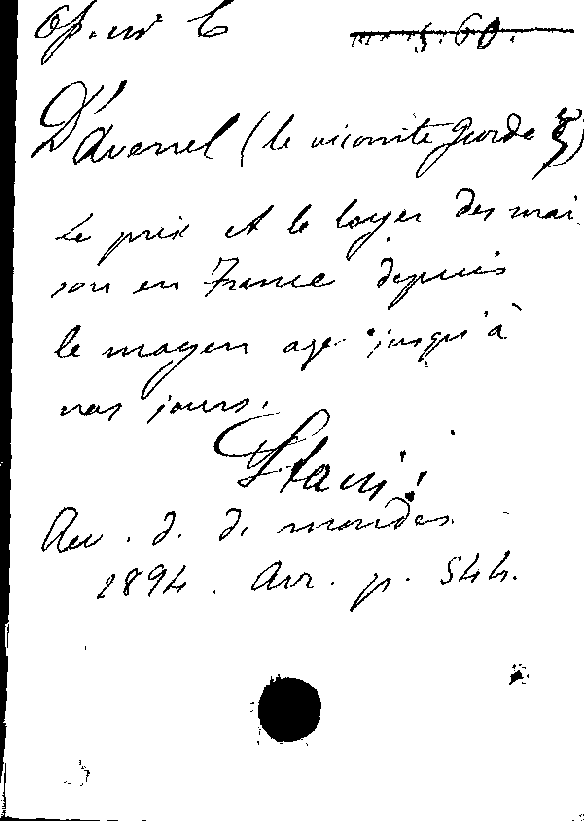 Op. in C 5.60.
D'avenel (le vicomte George
Le prix et le loyer des mai
son en France depuis
le moyen age jusqu'à
nos jours.
Rev. d. d. mondes
1894. Avr. p. 544.